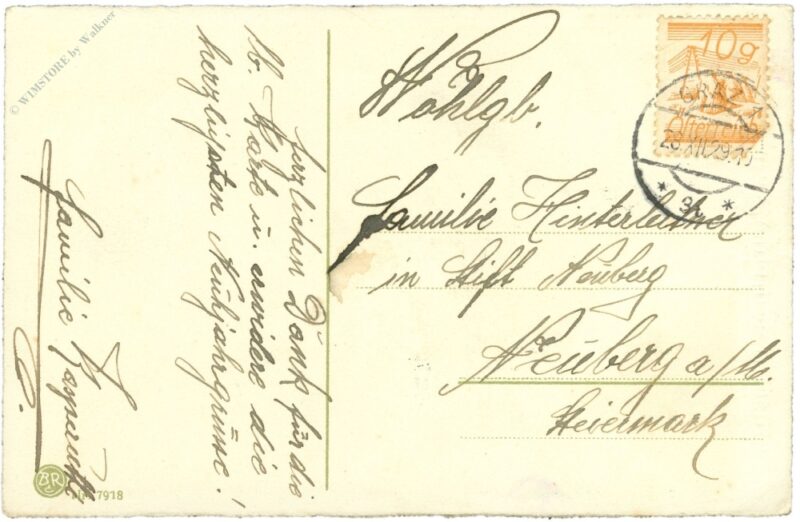 © WIMSTORE by Walkner
Herzlichen Dank für die
lb. Karte u. erwidere die
herzlichsten Neujahrgrüsse!
Familie
10g
Österreich
GRAZ 1
28.XII.29.10
* *
Wohlgb.
Familie Hinterleitner
in Stift Neuberg
Neuberg a/M.
Steiermark
BR
Nr. 7918